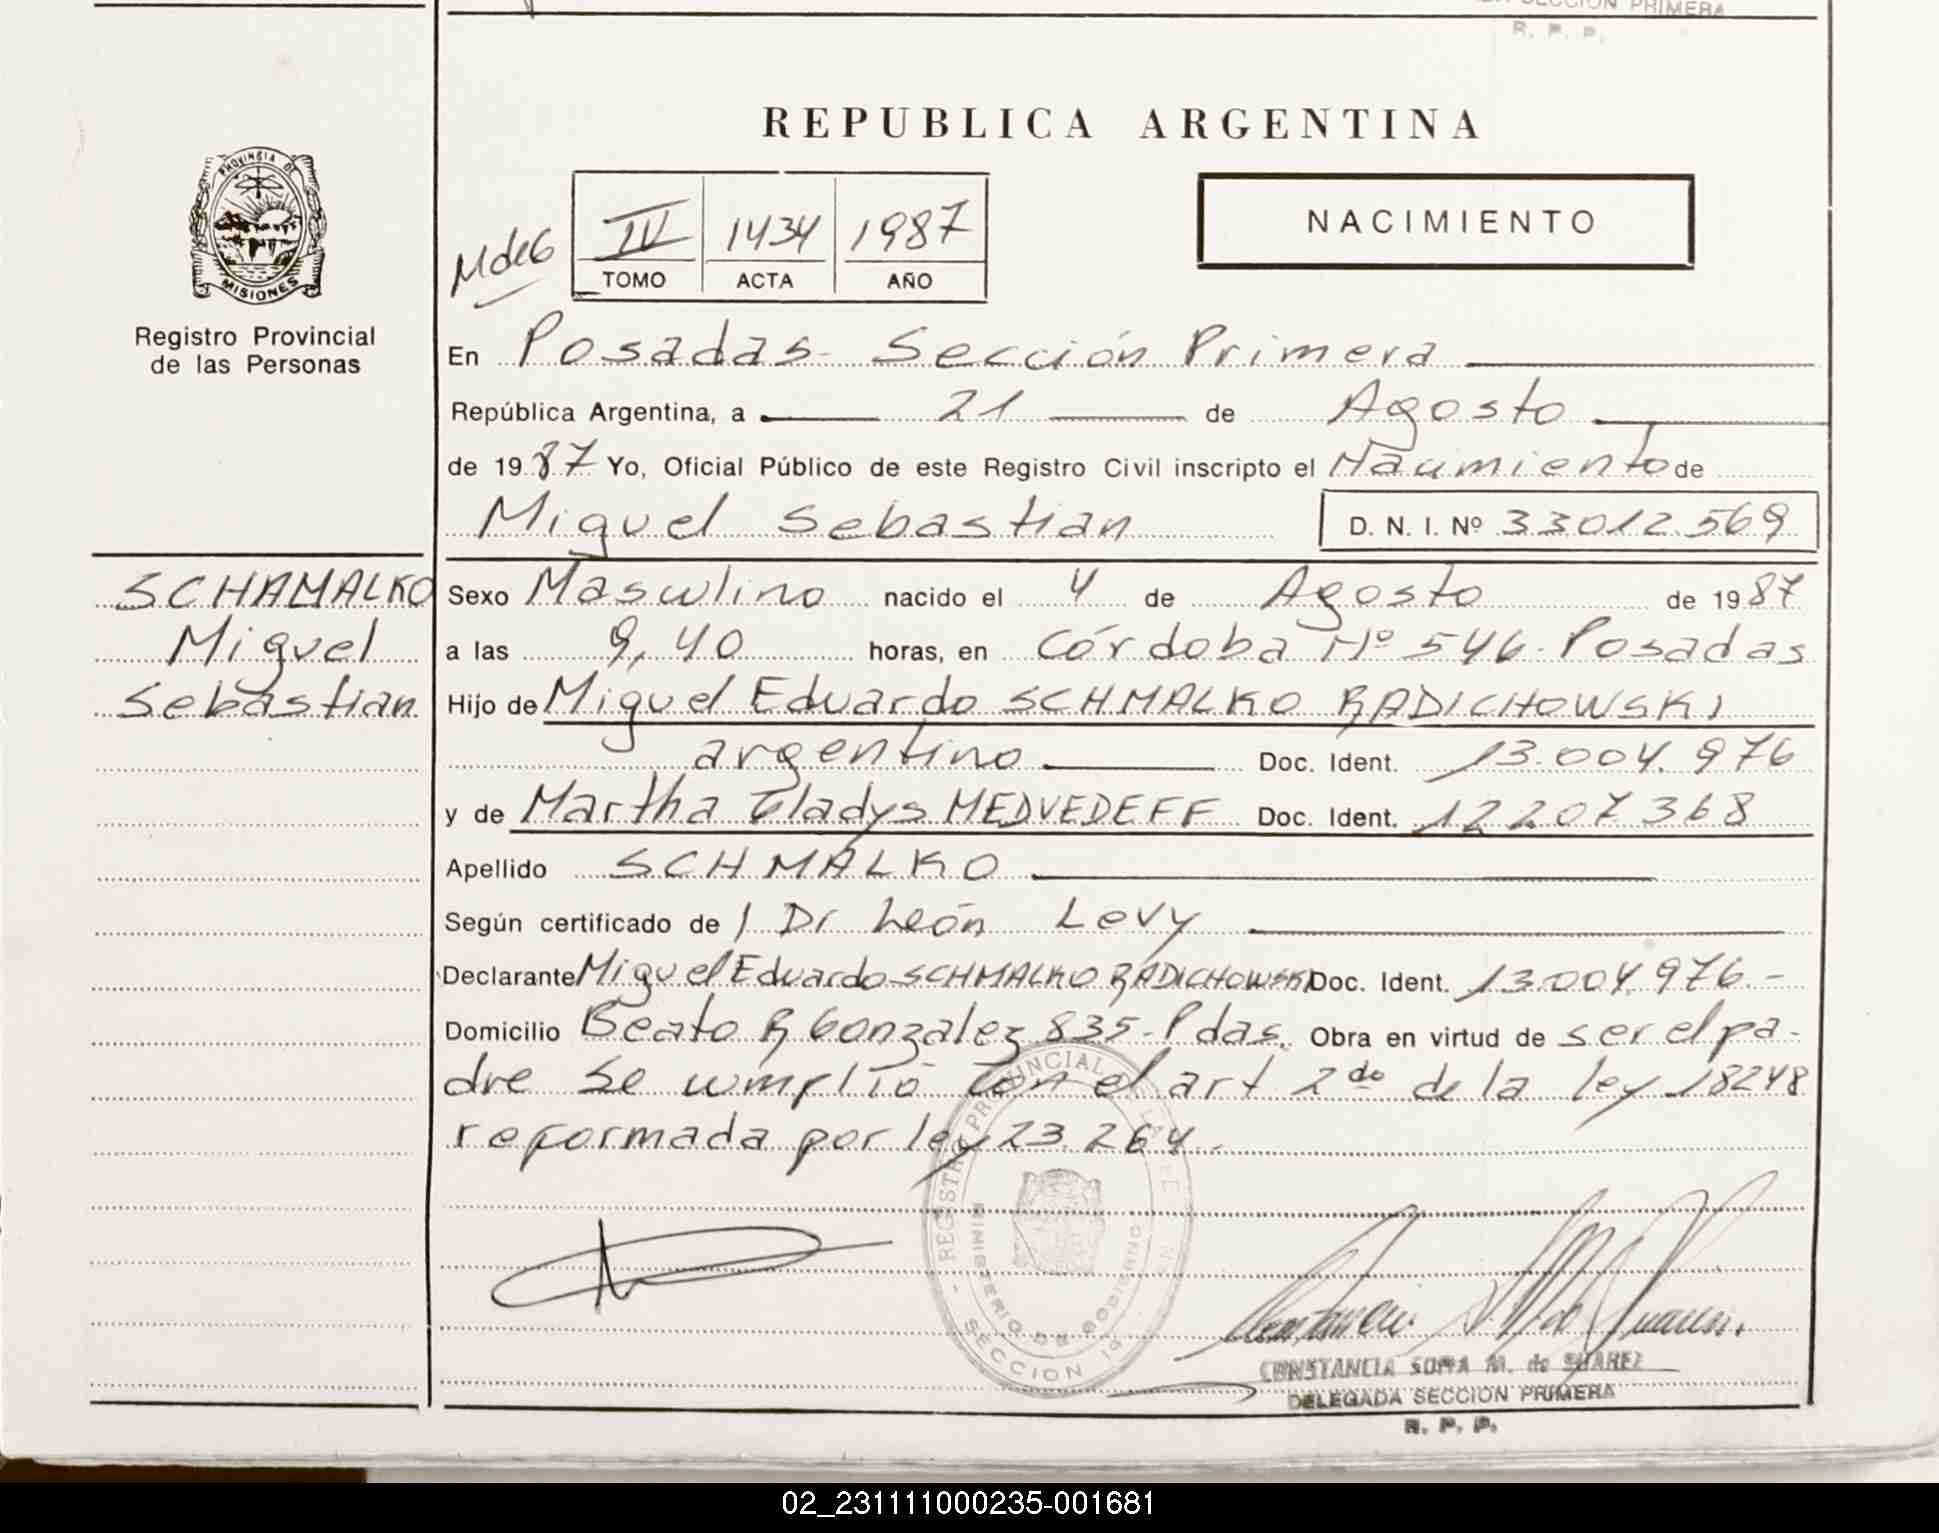 SECCION PRIMERA
R. P. P.
REPUBLICA ARGENTINA
PROVINCIA DE
MISIONES
Registro Provincial
de las Personas
MdeG
IV 1434 1987
TOMO ACTA AÑO
NACIMIENTO
En Posadas- Sección Primera
República Argentina, a 21 de Agosto
de 1987 Yo, Oficial Público de este Registro Civil inscripto el Nacimiento de
Miguel Sebastian D. N. I. Nº 33012.569
SCHAMALKO
Miguel
Sebastian
Sexo Masculino nacido el 4 de Agosto de 1987
a las 9,40 horas, en Córdoba Nº 546. Posadas
Hijo de Miguel Eduardo SCHMALKO RADICHOWSKI
argentino Doc. Ident. 13.004.976
y de Martha Gladys MEDVEDEFF Doc. Ident. 12207368
Apellido SCHMALKO
Según certificado de / Dr León Levy
Declarante Miguel Eduardo SCHMALKO RADICHOWSKI Doc. Ident. 13.004.976.-
Domicilio Beato R Gonzalez 835-Pdas. Obra en virtud de ser el pa-
dre Se cumplió con el art 2do de la ley 18248
reformada por ley 23.264.-
REGISTRO PROVINCIAL DE LAS
MINISTERIO DE GOBIERNO
SECCION 1ª
CONSTANCIA SOFIA M. de SUAREZ
DELEGADA SECCION PRIMERA
R. P. P.
02_231111000235-001681